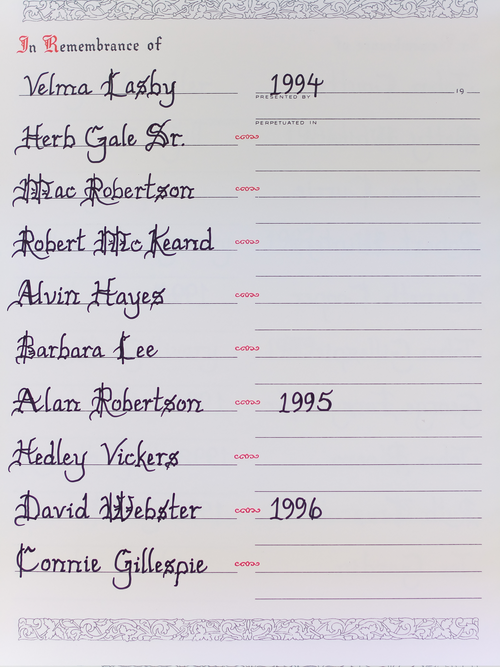 In Remembrance of
Velma Lasby 1994 19
PRESENTED BY
PERPETUATED IN
Herb Gale Sr.
Mac Robertson
Robert McKeand
Alvin Hayes
Barbara Lee
Alan Robertson 1995
Hedley Vickers
David Webster 1996
Connie Gillespie